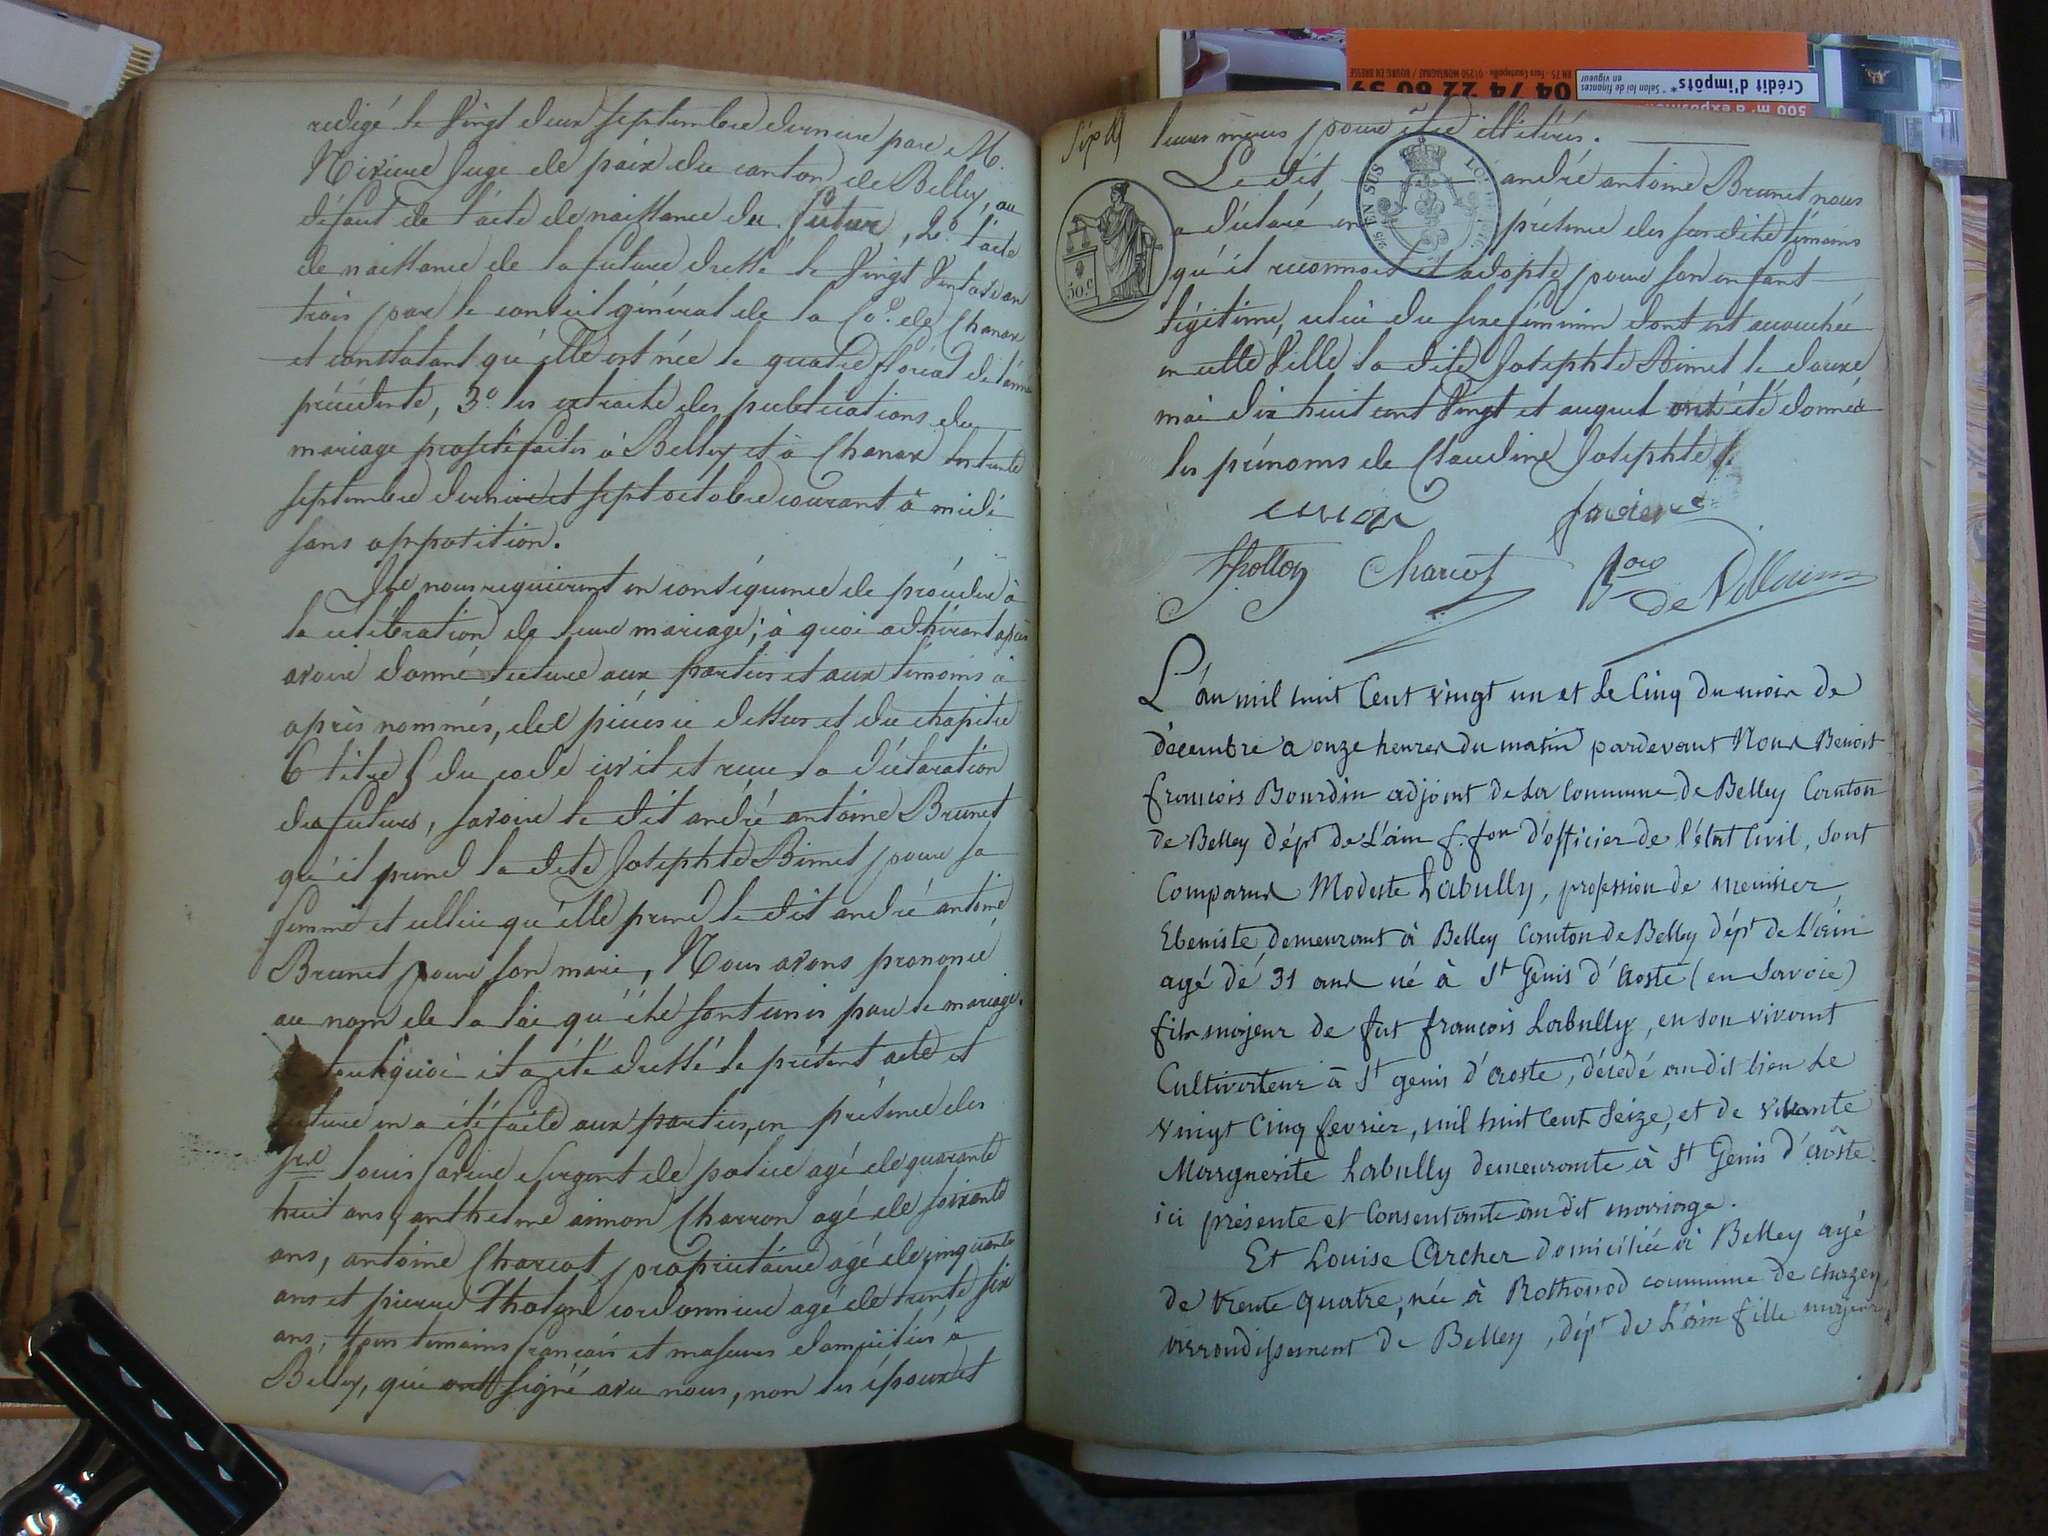 redigé le vingt deux septembre dernier par M.
juge de paix du canton de Belley, au
défaut de l'acte de naissance du futur, 2.º l'acte
de naissance de la future dressé le vingt Ventose an
trois par le conseil général de la Cº. de Chanax
et constatant qu'elle est née le quatre floréal de l'année
précédente, 3.º les extraits des publications du
mariage projetté faites à Belley et à Chanax les trente
septembre dernier et sept octobre courant à midi
sans opposition.
Ils nous requierent en conséquence de procéder à
la célébration de leur mariage; à quoi adhérant après
avoir donné lecture aux parties et aux témoins ci
après nommés, des pièces ci dessus et du chapitre
6 titre 5 du code civil et reçu la déclaration
des futurs, savoir le dit andré antoine Brunet
qu'il prend la dite Josephte Binet pour sa
femme et celle ci qu'elle prend le dit andré antoine
Brunet pour son mari, Nous avons prononcé
au nom de la loi qu'ils sont unis par le mariage.
quoi il a été dressé le présent acte et
lecture en a été faite aux parties, en présence des
srs. louis farine sergent de police agé de quarante
huit ans, anthelme aimon Charron agé de soixante
ans, antoine Charcot propriétaire agé de cinquante
ans et pierre cordonnier agé de trente six
ans, tous témoins français et majeurs domiciliés à
Belley, qui ont signé avec nous, non les époux et
leurs mères pour être illitérés.
Le dit andré antoine Brunet nous
a déclaré en présence des susdits témoins
qu'il reconnoit et adopte pour son enfant
légitime, celui du sexe féminin dont est accouchée
en cette Ville la dite Josephte Binet le douze
mai dix huit cent vingt et auquel ont été donnés
les prénoms de Claudine Josephte
50.C
Charcot
Bon
L'an mil huit Cent vingt un et le Cinq du mois de
décembre a onze heures du matin pardevant Nous Benoit
françois Bourdin adjoint de La Commune de Belley Canton
de Belley dépt de L'ain f. fon d'officier de l'état Civil, Sont
Comparus Modeste Labully, profession de menisier
Ebeniste, demeurant à Belley Canton de Belley dépt de L'ain
agé de 31 ans né à St Genis d'Aoste (en Savoie)
fils majeur de fut françois Labully, en son vivant
Cultivateur à St genis d'Aoste, décédé audit lieu Le
vingt Cinq fevrier, mil huit Cent Seize, et de vivante
Marguerite Labully demeurante à St Genis d'Aôste
ici présente et Consentante audit mariage.
Et Louise Carcher domiciliée à Belley agé
de trente quatre, née à Rothonod commune de chazey
arrondissement de Belley, dépt de L'ain fille majeure
Crédit d'impôts
* Selon loi de finances
en vigueur
04 74 22 60 59